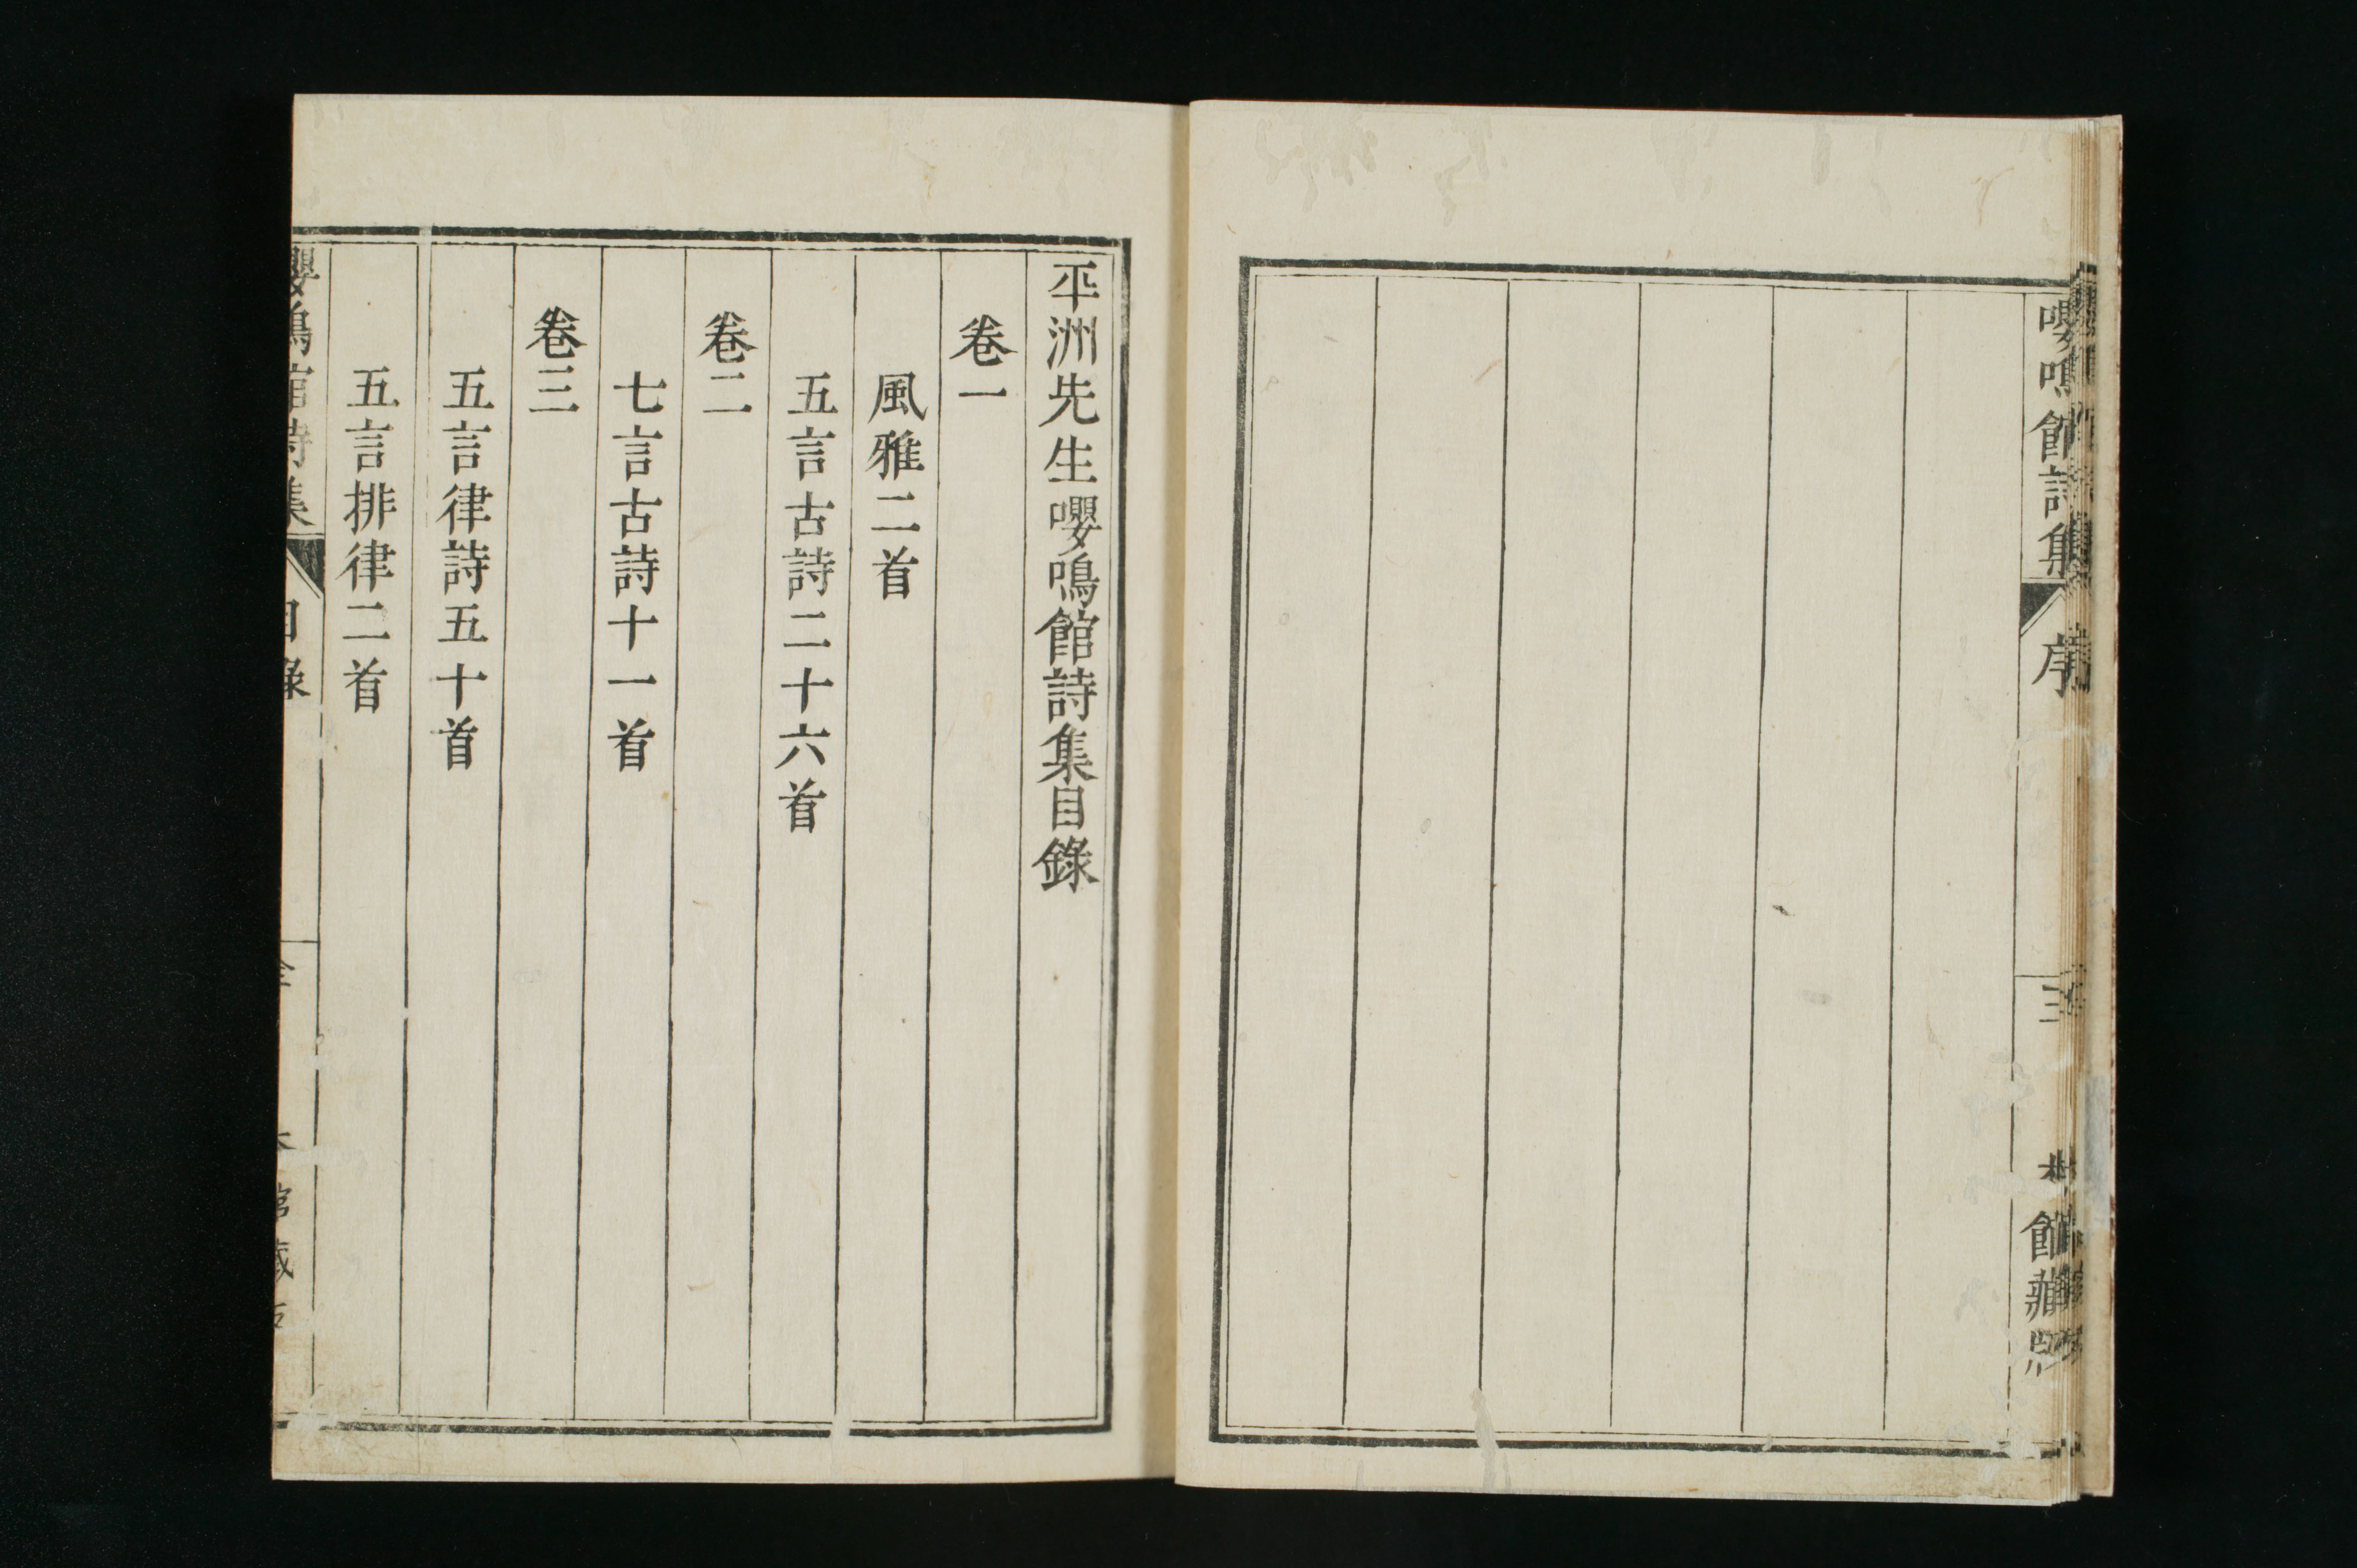 嚶鳴館詩集 序 三 本館藏版
平洲先生嚶鳴館詩集目錄
卷一
風雅二首
五言古詩二十六首
卷二
七言古詩十一首
卷三
五言律詩五十首
五言排律二首
嚶鳴館詩集 目錄